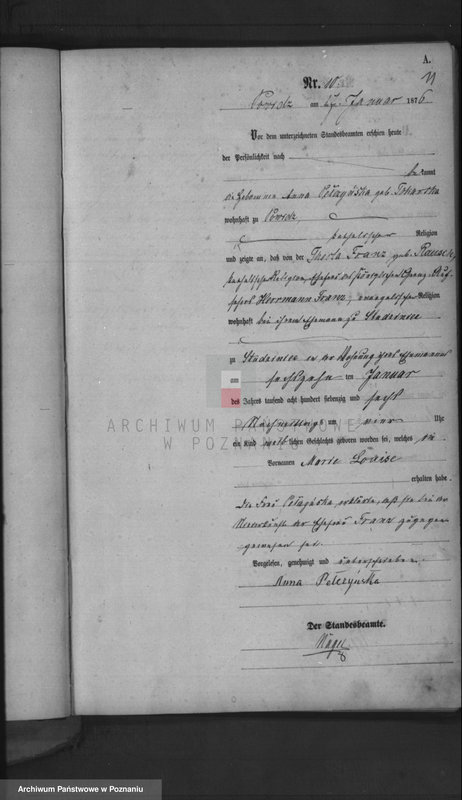 A.
11
Nr. 10.
Powidz am 17. Januar 1876
Vor dem unterzeichneten Standesbeamten erschien heute
der Persönlichkeit nach
bekannt
die Hebamme Anna geb. Tokarska
wohnhaft zu Powidz
katholischer Religion
und zeigte an, daß von der Franz, geb. Rausch,
katholischer Religion, Ehefrau des Königlichen Grenz Auf-
sehers Herrmann Franz, evangelischer Religion
wohnhaft bei ihrem Ehemann zu Studzieniec
zu Studzieniec in der Wohnung ihres Ehemanns
am sechszehn ten Januar
des Jahres tausend acht hundert siebenzig und sechs
Nachmittags um Uhr
ein Kind weiblichen Geschlechts geboren worden sei, welches die
Vornamen Marie Louise
erhalten habe.
Die Frau erklärte, daß sie bei der
Niederkunft der Ehefrau Franz zugegen
gewesen sei.
Vorgelesen, genehmigt und unterschrieben
Anna Pełczyńska
Der Standesbeamte.
ARCHIWUM PAŃSTWOWE
W POZNANIU
Archiwum Państwowe w Poznaniu